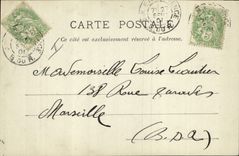 CARTE POSTALE
Ce côté est exclusivement réservé à l'adresse.
Mademoiselle Louise
138 Rue
Marseille
(B-D-R)